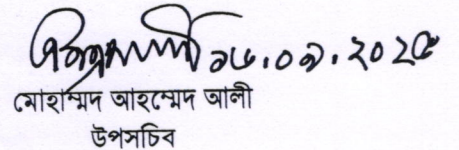 ১৬.০৯.২০২৫
মোহাম্মদ আহম্মেদ আলী
উপসচিব